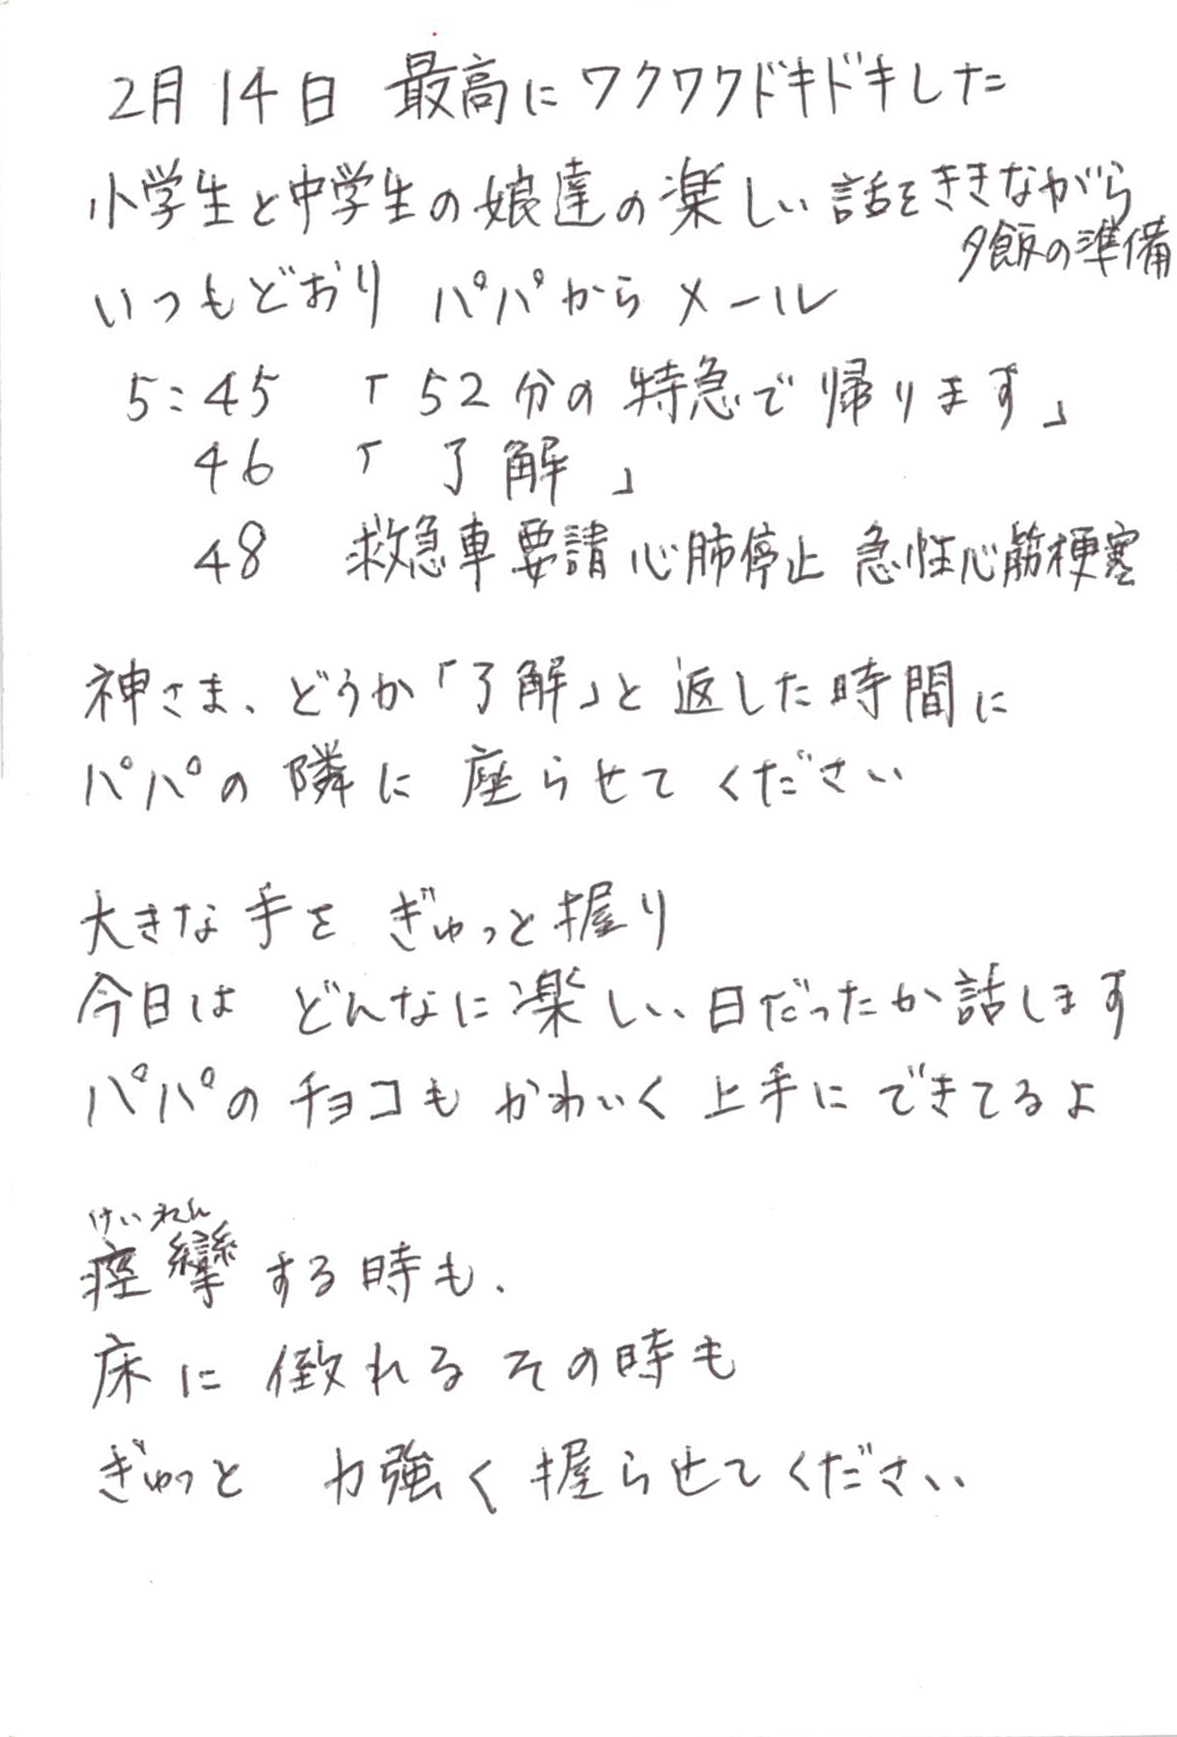 2月14日 最高にワクワクドキドキした
小学生と中学生の娘達の楽しい話をききながら
夕飯の準備
いつもどおり パパからメール
5:45 「52分の特急で帰ります」
46 「了解」
48 救急車要請 心肺停止 急性心筋梗塞
神さま、どうか「了解」と返した時間に
パパの隣に座らせてください
大きな手を ぎゅっと握り
今日は どんなに楽しい日だったか話します
パパのチョコも かわいく上手にできてるよ
けいれん
痙攣する時も、
床に倒れるその時も
ぎゅっと 力強く握らせてください